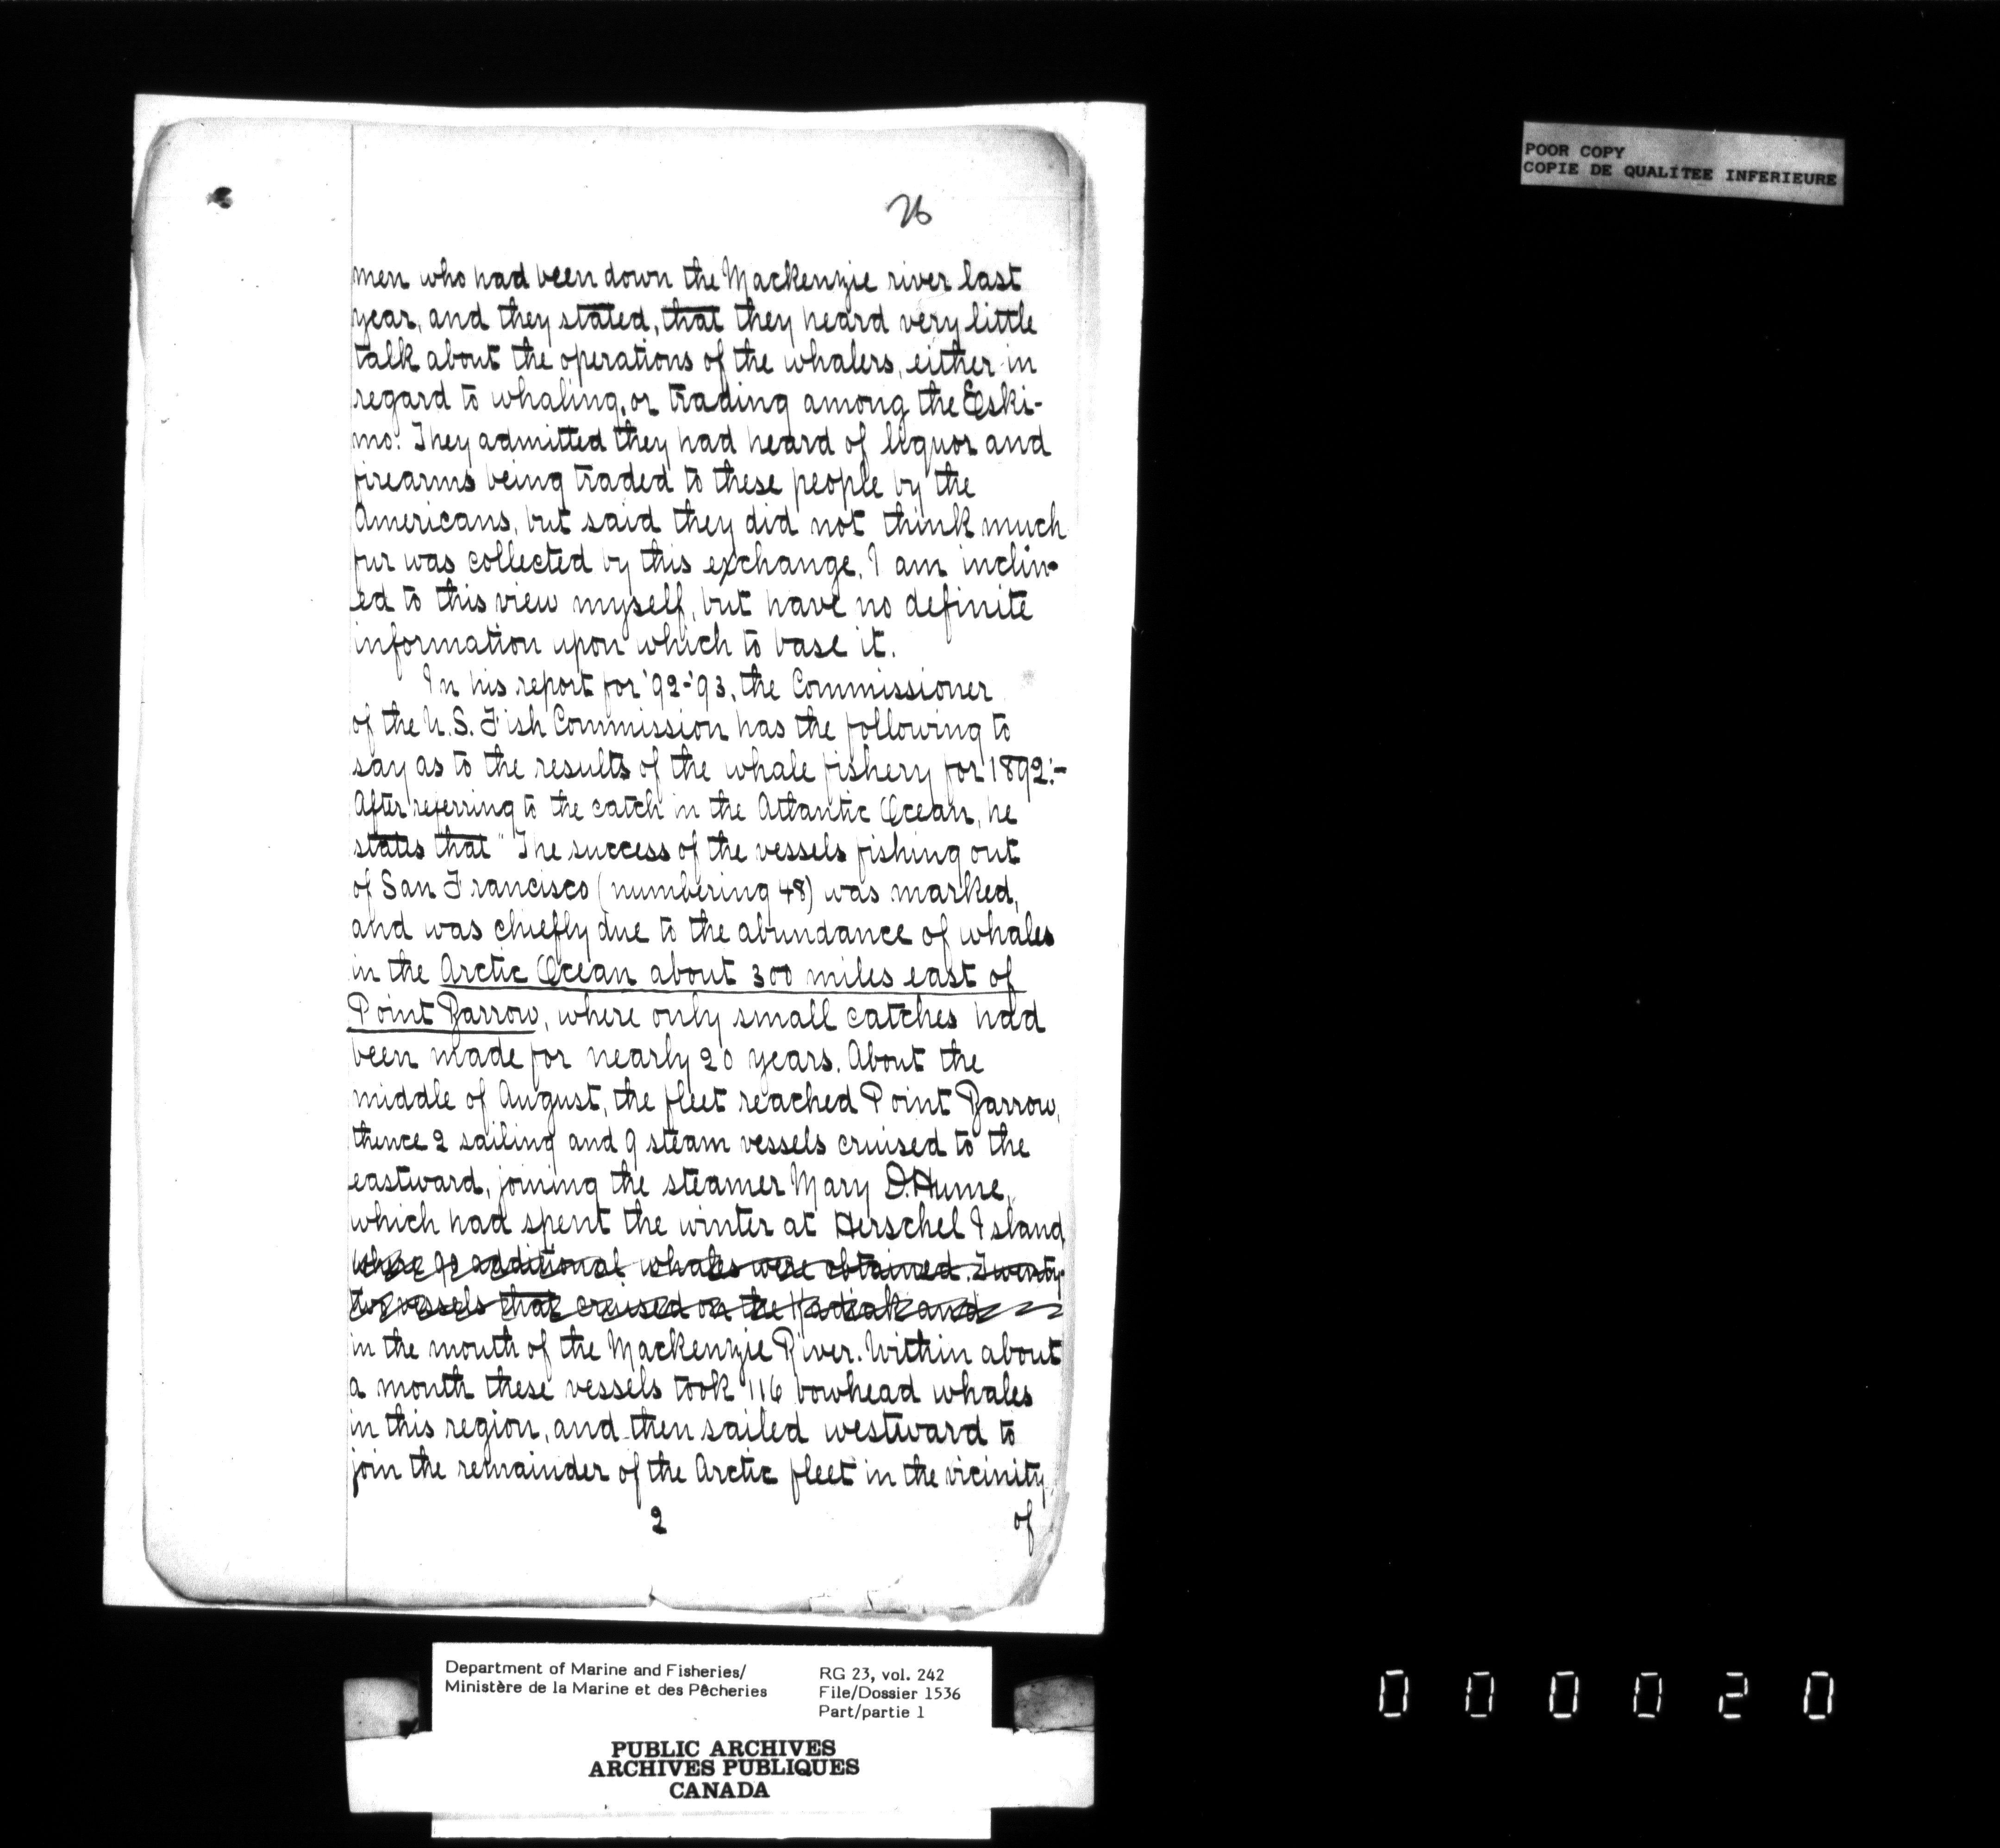 POOR COPY
COPIE DE QUALITEE INFERIEURE
26
men who had been down the Mackenzie river last
year, and they stated, that they heard very little
talk about the operations of the whalers, either in
regard to whaling, or trading among the Eski-
mo. They admitted they had heard of liquor and
firearms being traded to these people by the
Americans, but said they did not think much
fur was collected by this exchange. I am inclin-
ed to this view myself, but have no definite
information upon which to base it.
In his report for '92-'93, the Commissioner
of the U.S. Fish Commission has the following to
say as to the results of the whale fishery for 1892:-
After referring to the catch in the Atlantic Ocean, he
states that "The success of the vessels fishing out
of San Francisco (numbering 48) was marked,
and was chiefly due to the abundance of whales
in the Arctic Ocean about 300 miles east of
Point Barrow, where only small catches had
been made for nearly 20 years. About the
middle of August, the fleet reached Point Barrow,
thence 2 sailing and 9 steam vessels cruised to the
eastward, joining the steamer Mary D. Hume,
which had spent the winter at Herschel Island
where 90 additional whales were obtained. Twenty-
two vessels that cruised on the Kadiak and
in the mouth of the Mackenzie River. Within about
a month these vessels took 116 bowhead whales
in this region, and then sailed westward to
join the remainder of the Arctic fleet in the vicinity
2
of
Department of Marine and Fisheries/
Ministère de la Marine et des Pêcheries
RG 23, vol. 242
File/Dossier 1536
Part/partie 1
PUBLIC ARCHIVES
ARCHIVES PUBLIQUES
CANADA
000020